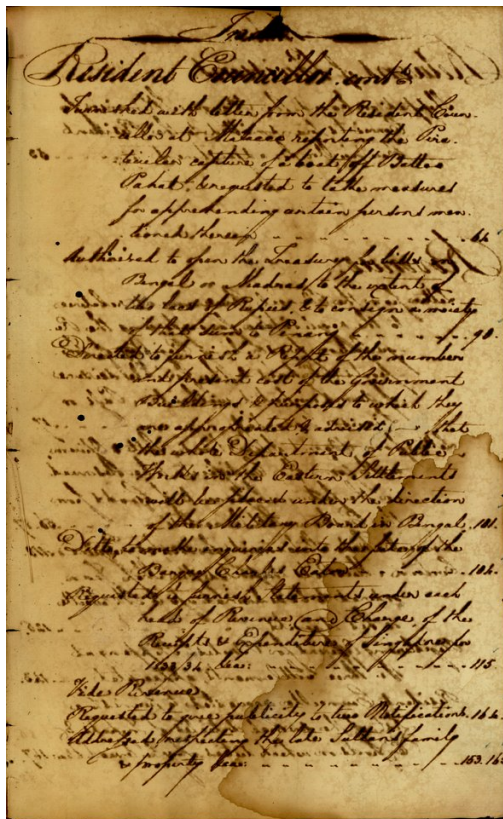 Index
Resident Councillor, cont:d
Furnished with letter from the Resident Coun-
cillor at Malacca reporting the Pira-
tical capture of a boat off Battoo
Pahat, & requested to take measures
for apprehending certain persons men-
tioned therein - - - - - - - 64
Authorised to open the Treasury for bills on
Bengal or Madras, to the extent of
lacs of Rupees, & to consign a moiety
of this sum to Penang - - - - 90.
Directed to furnish a Report of the number
and present cost of the Government
Buildings & purposes to which they
are appropriated & advised, that
the whole Department of Public
Works in the Eastern Settlements
will be placed under the direction
of the Military Board in Bengal. 101.
Ditto, to make enquiries into the of the
Estate - - - - 104.
Requested to furnish Statements under each
head of Revenue and Charge of the
Receipts & Expenditure of Singapore for
1833/34 - - - - - - 115
Vide Revenue
Requested to give publicity to two Notifications. 164.
Addressed respecting the late Sultan's family
& property - - - - - - 153.